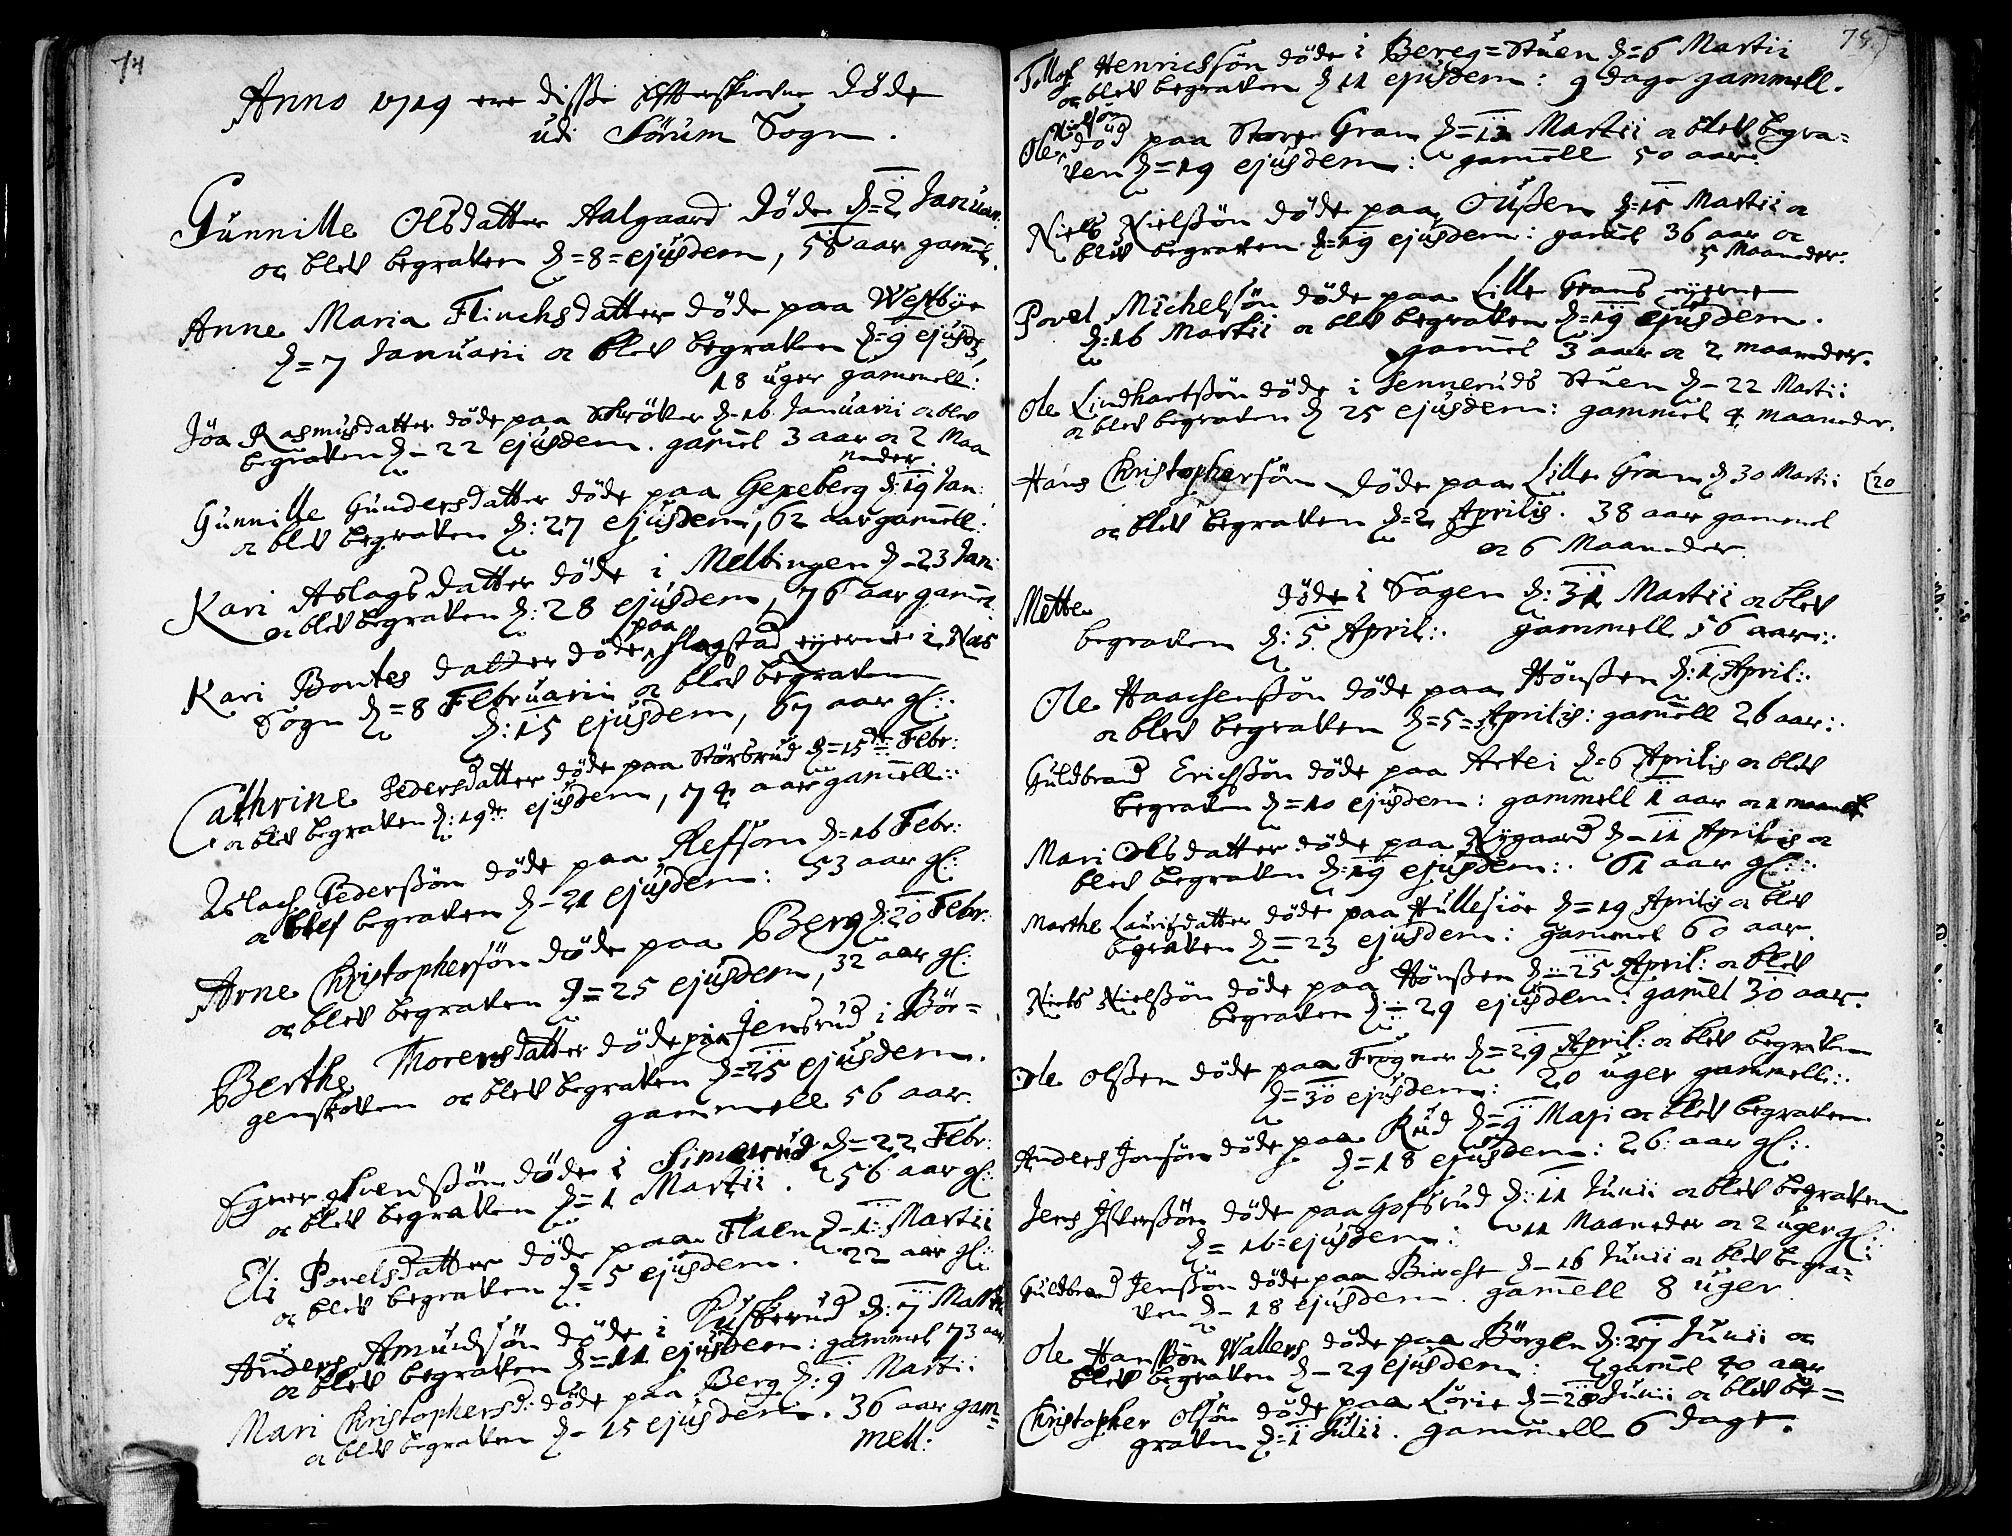 74
Anno 1719 ere disse Effterskrefne døde
udi Sørum Sogn.
Gunnille Olsdatter Aalgaard døde d=2 Januar:
oc blev begraven d=8=ejusdem, 58 aar gamel.
Anne Maria Flinchsdatter døde paa Westbye
d=7 Januarii oc blev begraven d=9 ejusd:,
18 uger gammell:
Jøa Rasmusdatter døde paa Schrøver d=16 Januarii oc blev
begraven d=22 ejusdem. gamel 3 aar oc 2 Maa
neder
Gunnille Gundersdatter døde paa Gexeberg d:19 Jan:
oc blev begraven d:27 ejusdem, 62 aar gamell:
Kari Aslagsdatter døde i Melbingen d=23 Jan:
oc blev begraven d:28 ejusdem, 76 aar gamel.
paa
Kari Bontes datter døde Slagstad eyerne i Næs
Sogn d=8 Februarii oc blev begraven
d:15 ejusdem, 67 aar gl:.
Cathrine Pedersdatter døde paa Størbrud d=15de Febr:
oc blev begraven d:19de ejusdem, 74 aar gamell:.
Aslach Pederssøn døde paa Refsom d=16 Febr:
oc blef begraven d=21 ejusdem: 53 aar gl:
Arne Christophersøn døde paa Berg d:20 Febr:
oc blev begraven d=25 ejusdem, 32 aar gl:
Berthe Thorersdatter døde paa Jensrud i Bør=
genskoven oc blev begraven d=25 ejusdem.
gammell 56 aar.
døde i Simerud d=22 Febr:
oc blev begraven d=1 Martii. 56 aar gl:
Eli Povelsdatter døde paa Flaen d=1: Martii
oc blev begraven d=5 ejusdem. 22 aar gl:.
Anders Amundsøn døde i Kuskerud d:7 Martii
oc blev begraven d=11 ejusdem: gammel 73 aar
Mari Christophersd: døde paa Berg d:9 Martii
oc blev begraven d=15 ejusdem. 36 aar gam=
mell:
75
Tollof Henrichsøn døde i Bereg=Stuen d=6 Martii
oc blev begraven d 11 ejusdem: 9 dage gammell.
Ole død paa Store Gran d=12 Martii oc blev begra=
ven d=19 ejusdem: gamell 50 aar:
Niels Nielssøn døde paa Oussen d=15 Martii oc
blev begraven d=19 ejusdem: gamel 36 aar oc
5 Maaneder:
Povel Michelsøn døde paa Lille Grans eyerne
d=16 Martii oc blev begraven d=19 ejusdem.
gamel 3 aar oc 2 maaneder.
Ole Lindhartssøn døde i Senneruds Stuen d=22 Martii
oc blev begraven d 25 ejusdem: gammel 4 maaneder.
Hans Christophersøn døde paa Lille Gran d 30 Martii
20
oc blev begraven d=2 Aprilis. 38 aar gammel
oc 6 Maaneder.
Mette døde i Sagen d:31 Martii oc blev
begraven d:5 April:. gammell 56 aar:.
Ole Haachenssøn døde paa Hønssen d:1 April:.
oc blev begraven d=5=Aprilis: gamell 26 aar:.
Guldbrand Erichssøn døde paa Artei d=6 Aprilis oc blev
begraven d=10 ejusdem: gammell 1 aar oc 1 maanet
Mari Olsdatter døde paa Nygaard d=11 Aprilis oc
blev begraven d=19 ejusdem:. 61 aar gl:.
Marthe Lauridsdatter døde paa Hullesiøe d=19 Aprilis oc blev
begraven d=23 ejusdem: gammel 60 aar.
Niels Nielssøn døde paa Hønssen d=25 April: oc blev
begraven d=29 ejusdem: gamel 30 aar.
Ole Olssen døde paa Frogner d=29 April: oc blev begraven
d=30 ejusdem: 20 uger gammell:.
Anders Jonsøn døde paa Rud d=9 Maji oc blev begraven
d=18 ejusdem: 26 aar gl:.
Jens døde paa Gofsrud d:11 Junii oc blev begraven
d=16=ejusdem: 11 Maaneder oc 2 uger gl:
Guldbrand Jenssøn døde paa Birche d=16 Junii oc blev begra=
ven d=18 ejusdem. gamell 8 uger.
Ole Hanssøn Wallers døde paa Børgen d:27 Junii oc
blev begraven d=29 ejusdem: gamel 40 aar
Christopher Olsøn døde paa Lørie d=28 Junii oc blev be=
graven d=1 Julii. gammell 6 dage.